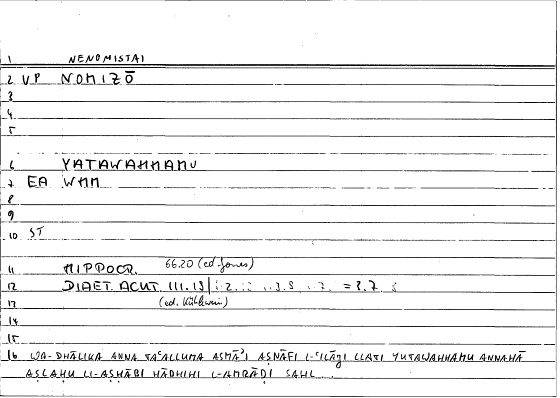 1 NENOMISTAI
2 VP NOMIZŌ
3
4
5
6 YATAWAHHAMU
7 EA WHM
8
9
10 ST
11 HIPPOCR. 66.20 (ed. Jones)
12 DIAET. ACUT. III.13 = 3.7
13 (ed. Kühlewein)
14
15
16 WA-DHĀLIKA ANNA TAʿALLUMA ASMĀʾI AṢNĀFI L-ʿILĀǦI LLATI YUTAWAHHAMU ANNAHĀ
AṢLAḤU LI-AṢḤĀBI HĀDHIHI L-AMRĀḌI SAHL